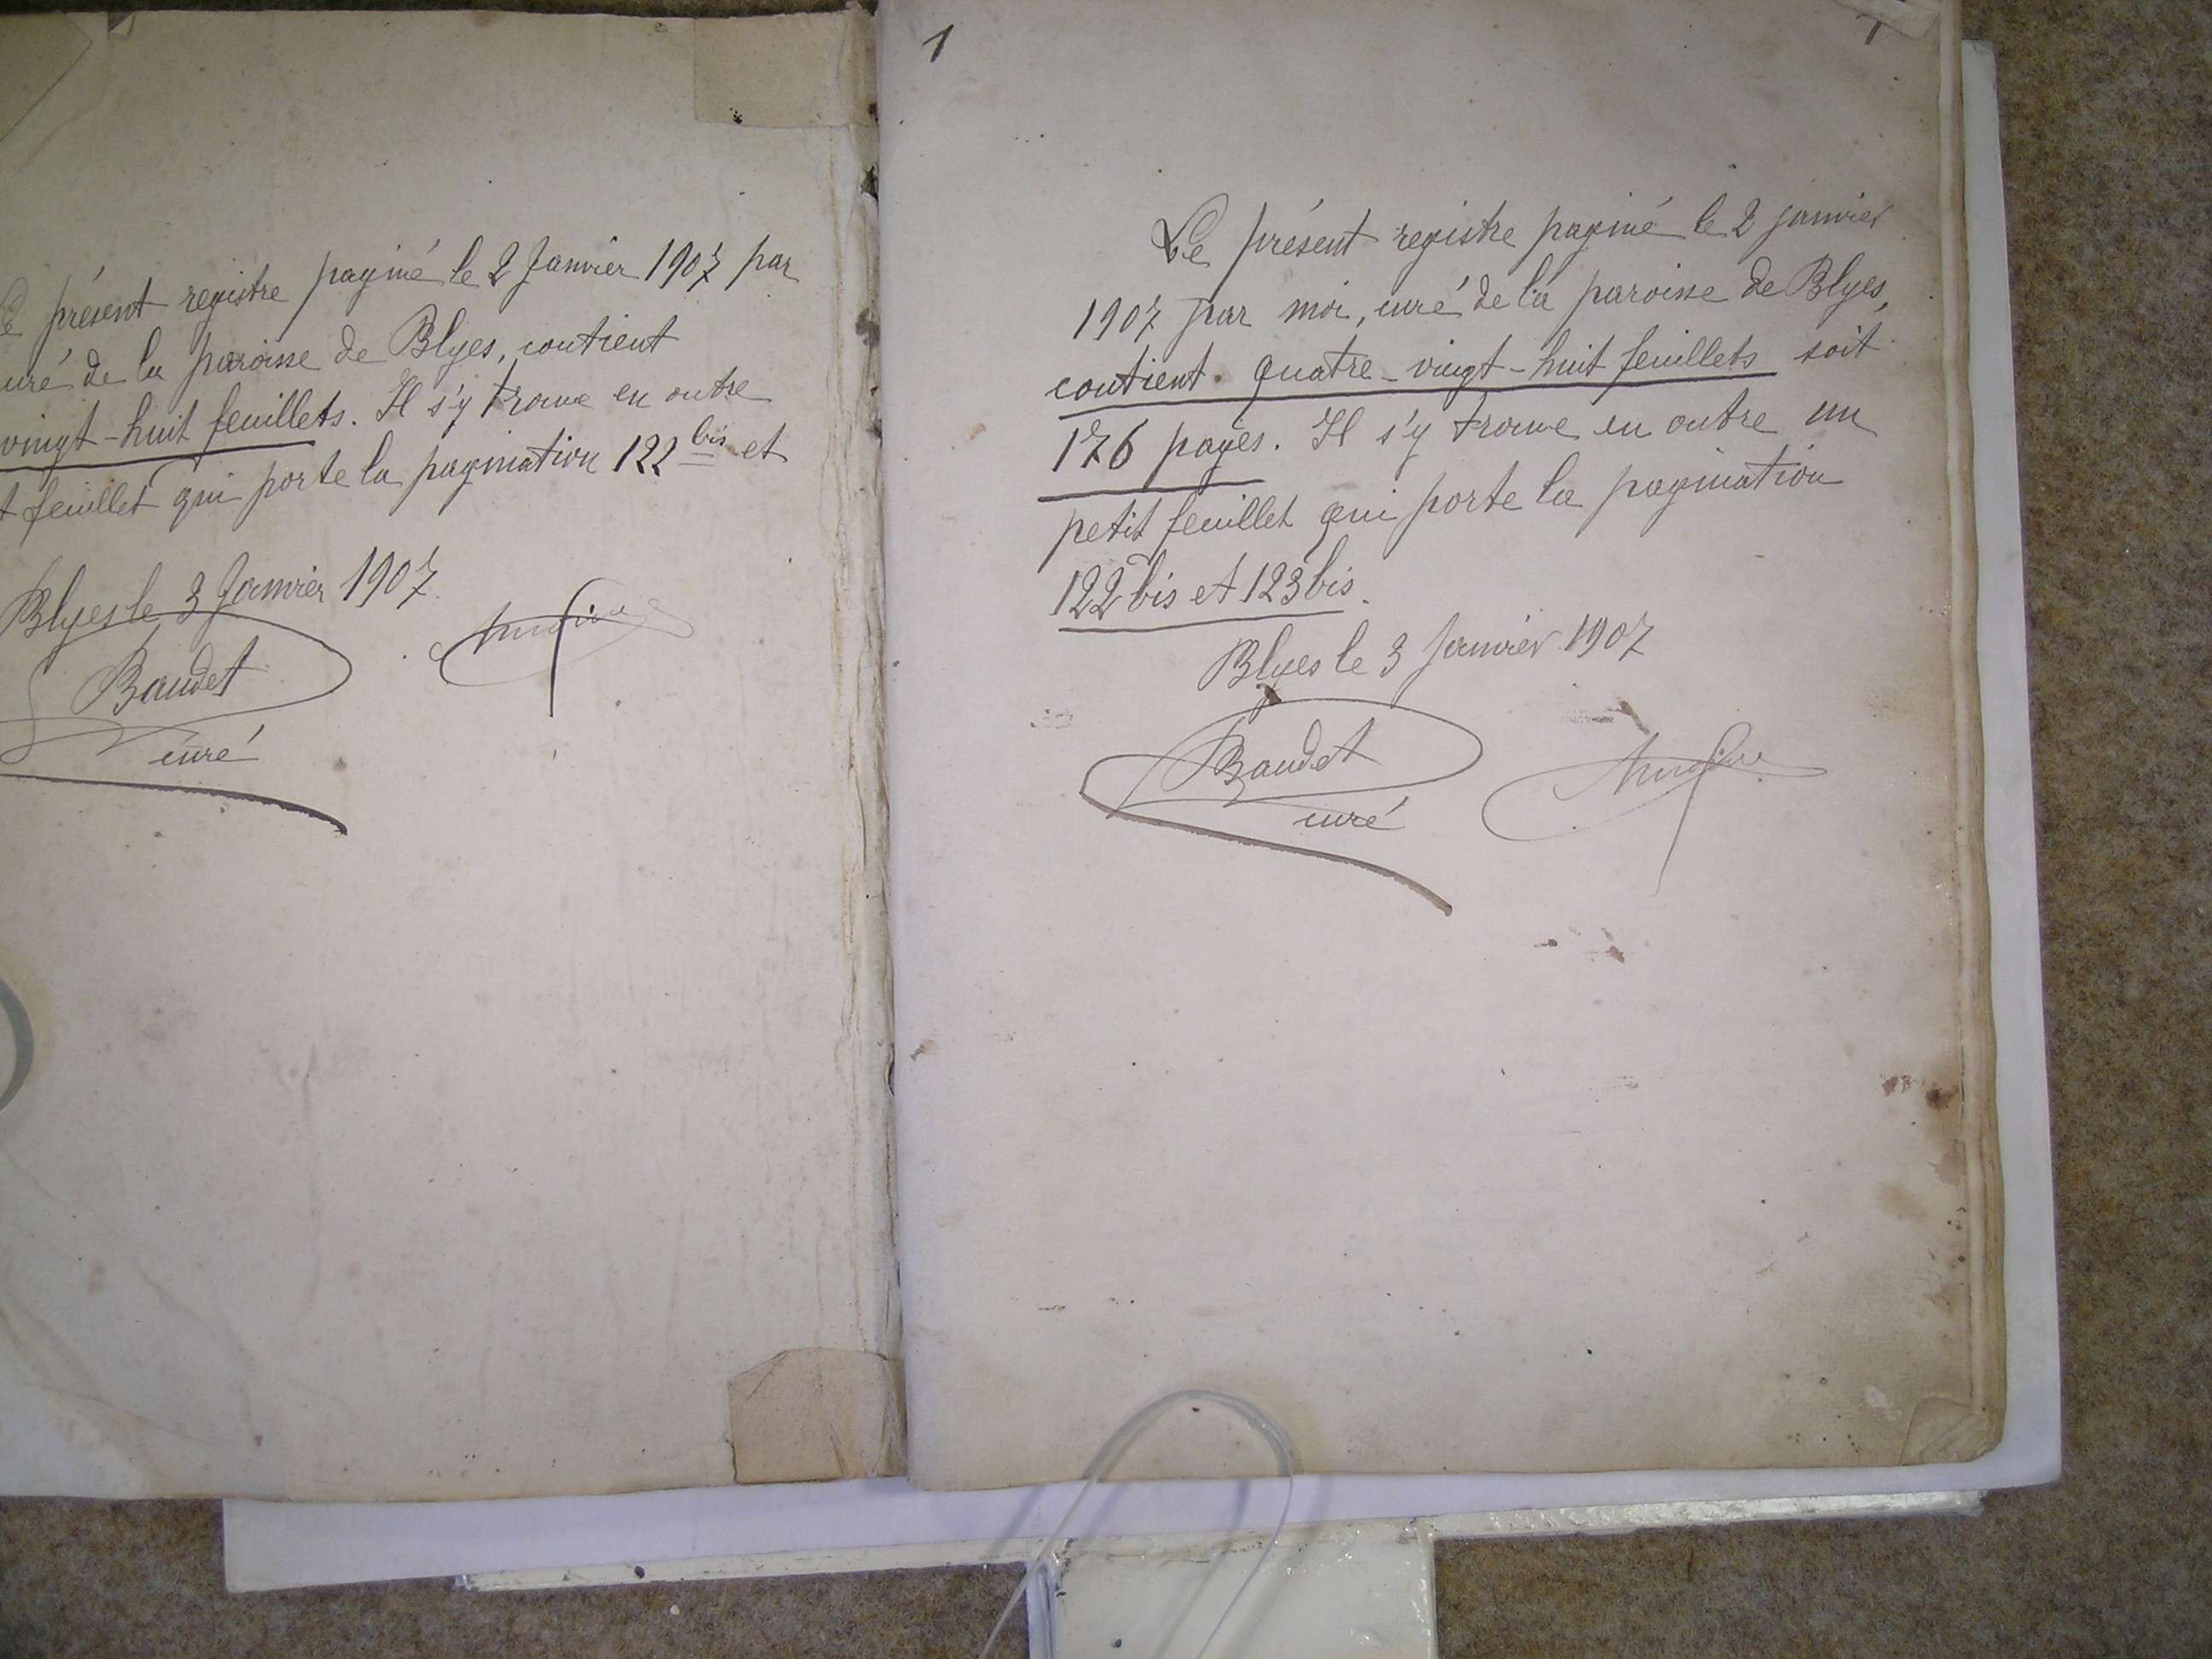 présent registre paginé le 2 Janvier 1907 par
curé de la paroisse de Blyes, contient
vingt-huit feuillets. Il s'y trouve en outre
feuillet qui porte la pagination 122 bis et
Blyes le 3 Janvier 1907.
Baudet
curé
1
1
Le présent registre paginé le 2 janvier
1907 par moi, curé de la paroisse de Blyes,
contient quatre-vingt-huit feuillets soit
176 pages. Il s'y trouve en outre un
petit feuillet qui porte la pagination
122 bis et 123 bis.
Blyes le 3 Janvier 1907
Baudet
curé